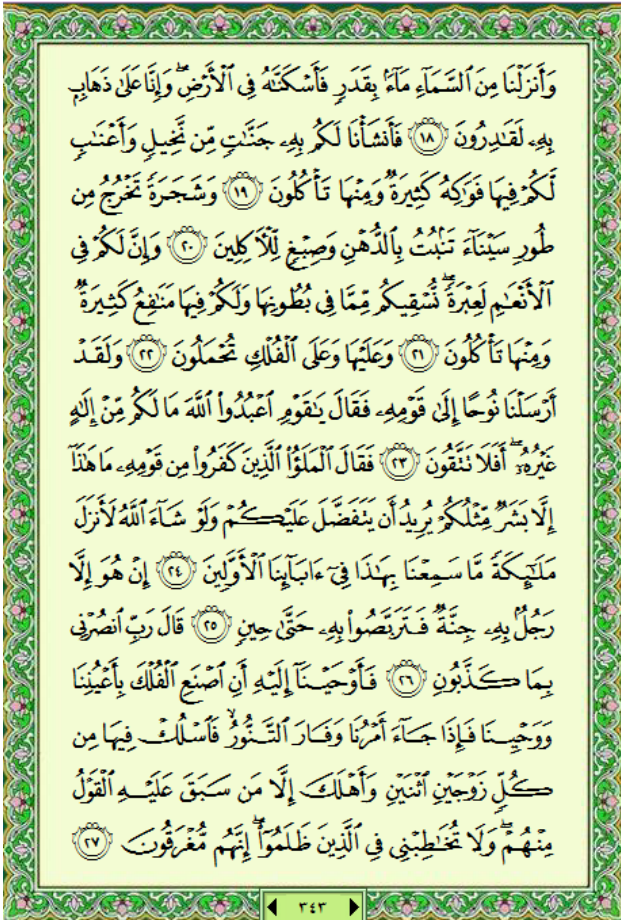 وَأَنزَلْنَا مِنَ ٱلسَّمَآءِ مَآءًۢ بِقَدَرٍ فَأَسْكَنَّٰهُ فِى ٱلْأَرْضِ ۖ وَإِنَّا عَلَىٰ ذَهَابٍۭ
بِهِۦ لَقَٰدِرُونَ ١٨ فَأَنشَأْنَا لَكُم بِهِۦ جَنَّٰتٍ مِّن نَّخِيلٍ وَأَعْنَٰبٍ
لَّكُمْ فِيهَا فَوَٰكِهُ كَثِيرَةٌ وَمِنْهَا تَأْكُلُونَ ١٩ وَشَجَرَةً تَخْرُجُ مِن
طُورِ سَيْنَآءَ تَنۢبُتُ بِٱلدُّهْنِ وَصِبْغٍ لِّلْـَٔاكِلِينَ ٢٠ وَإِنَّ لَكُمْ فِى
ٱلْأَنْعَٰمِ لَعِبْرَةً ۖ نُّسْقِيكُم مِّمَّا فِى بُطُونِهَا وَلَكُمْ فِيهَا مَنَٰفِعُ كَثِيرَةٌ
وَمِنْهَا تَأْكُلُونَ ٢١ وَعَلَيْهَا وَعَلَى ٱلْفُلْكِ تُحْمَلُونَ ٢٢ وَلَقَدْ
أَرْسَلْنَا نُوحًا إِلَىٰ قَوْمِهِۦ فَقَالَ يَٰقَوْمِ ٱعْبُدُوا۟ ٱللَّهَ مَا لَكُم مِّنْ إِلَٰهٍ
غَيْرُهُۥٓ ۖ أَفَلَا تَتَّقُونَ ٢٣ فَقَالَ ٱلْمَلَؤُا۟ ٱلَّذِينَ كَفَرُوا۟ مِن قَوْمِهِۦ مَا هَٰذَآ
إِلَّا بَشَرٌ مِّثْلُكُمْ يُرِيدُ أَن يَتَفَضَّلَ عَلَيْكُمْ وَلَوْ شَآءَ ٱللَّهُ لَأَنزَلَ
مَلَٰٓئِكَةً مَّا سَمِعْنَا بِهَٰذَا فِىٓ ءَابَآئِنَا ٱلْأَوَّلِينَ ٢٤ إِنْ هُوَ إِلَّا
رَجُلٌۢ بِهِۦ جِنَّةٌ فَتَرَبَّصُوا۟ بِهِۦ حَتَّىٰ حِينٍ ٢٥ قَالَ رَبِّ ٱنصُرْنِى
بِمَا كَذَّبُونِ ٢٦ فَأَوْحَيْنَآ إِلَيْهِ أَنِ ٱصْنَعِ ٱلْفُلْكَ بِأَعْيُنِنَا
وَوَحْيِنَا فَإِذَا جَآءَ أَمْرُنَا وَفَارَ ٱلتَّنُّورُ ۙ فَٱسْلُكْ فِيهَا مِن
كُلٍّ زَوْجَيْنِ ٱثْنَيْنِ وَأَهْلَكَ إِلَّا مَن سَبَقَ عَلَيْهِ ٱلْقَوْلُ
مِنْهُمْ ۖ وَلَا تُخَٰطِبْنِى فِى ٱلَّذِينَ ظَلَمُوٓا۟ ۖ إِنَّهُم مُّغْرَقُونَ ٢٧
٣٤٣